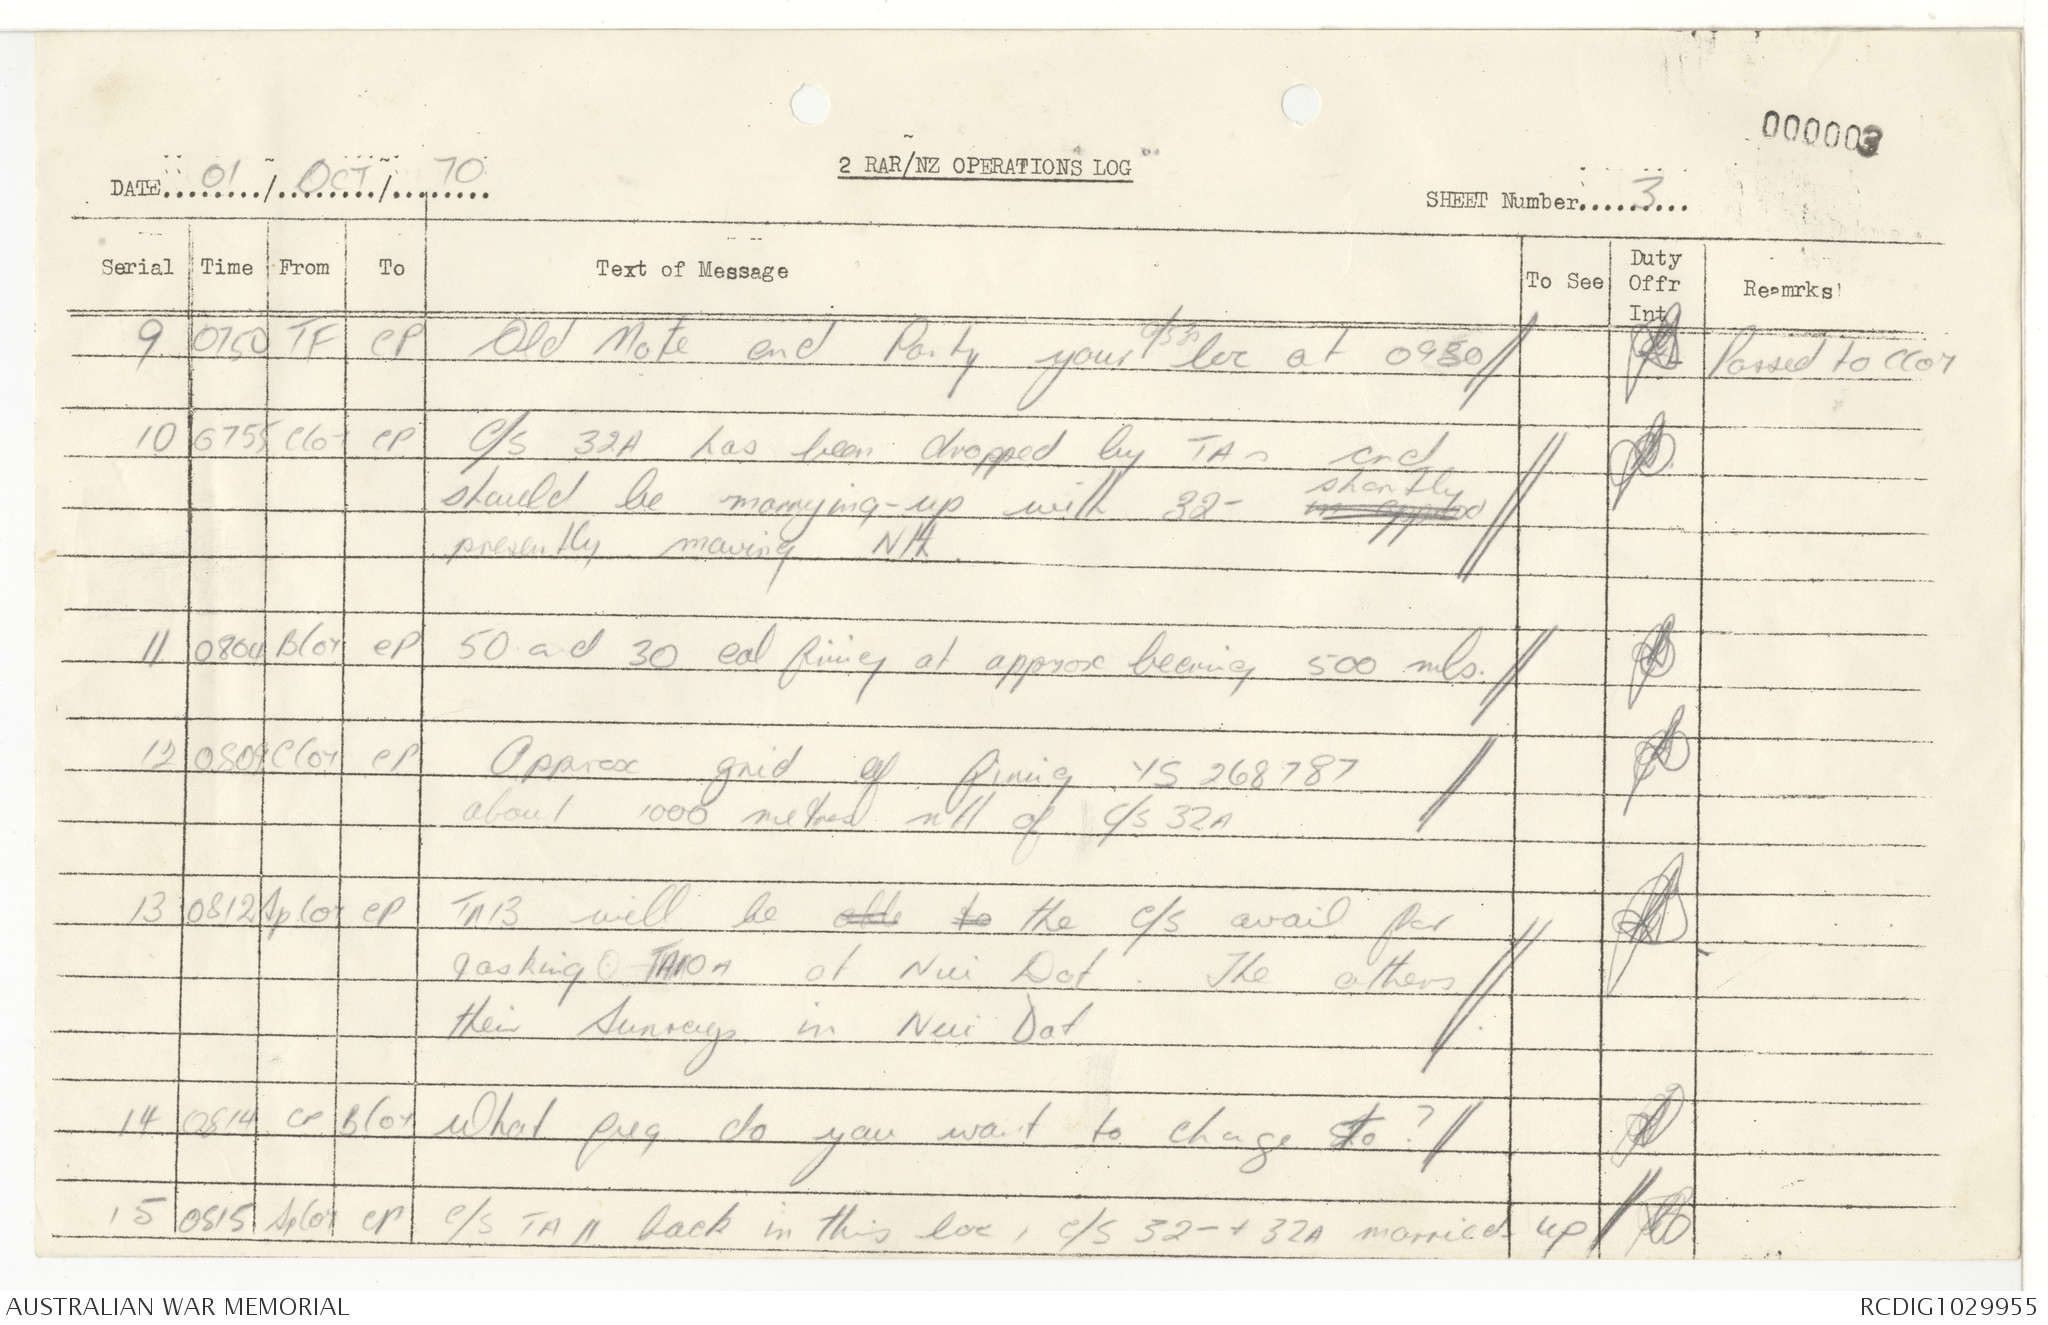 000003
2 RAR/NZ OPERATIONS LOG
DATE 01 / OCT / 70
SHEET Number 3
Serial Time From To Text of Message To See Duty Offr Int Remrks
9 0750 TF CP Old Mate and Party your c/s 3 loc at 0930 // Passed to
10 0755 CP C/S 32A has been dropped by TA and
should be marrying-up with 32- shortly
presently moving Nth.
11 0804 CP 50 and 30 cal firing at approx bearing 500 mls. //
12 0809 CP Approx grid of firing YS 268787 //
about 1000 metres nth of C/S 32A
13 0812 CP TA13 will be able to the C/S avail for
tasking TA10A at Nui Dat. The others
their Sunrays in Nui Dat //
14 0814 CP What freq do you want to change to? //
15 0815 CP C/S TA11 back in this loc, C/S 32- + 32A married up //
AUSTRALIAN WAR MEMORIAL
RCDIG1029955